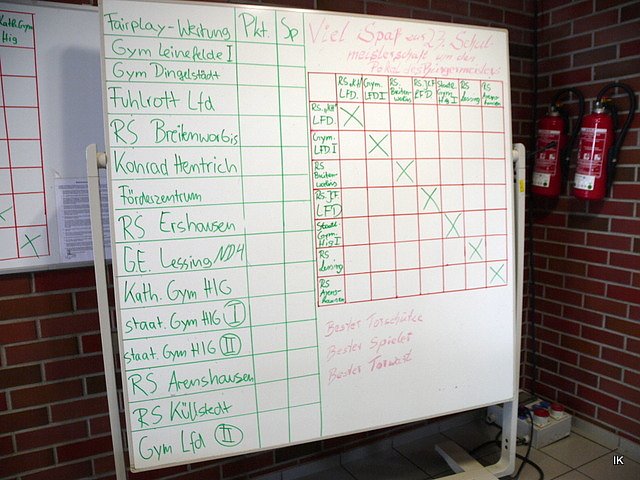 Kath. Gym
Hig
Fairplay-Wertung Pkt. Sp
Gym Leinefelde I
Gym Dingelstädt
Fuhlrott Lfd
RS Breitenworbis
Konrad Hentrich
Förderzentrum
RS Ershausen
G.E. Lessing NDH
Kath. Gym HIG
staat. Gym HIG I
staat. Gym HIG II
RS Arenshausen
RS Küllstedt
Gym Lfd II
Viel Spaß zur 23. Schul-
meisterschaft um den
Pokal des Bürgermeisters
RS "KH" LFD
Gym. LFD I
RS Breiten-worbis
RS. JCF LFD
Staatl. Gym. Hig I
RS Lessing
RS Arens-hausen
RS. "KH"
LFD
Gym.
LFD I
RS
Breiten-
worbis
RS. JCF
LFD
Staatl.
Gym.
Hig I
RS
Lessing
RS
Arens-
hausen
Bester Torschütze
Bester Spieler
Bester Torwart
IK